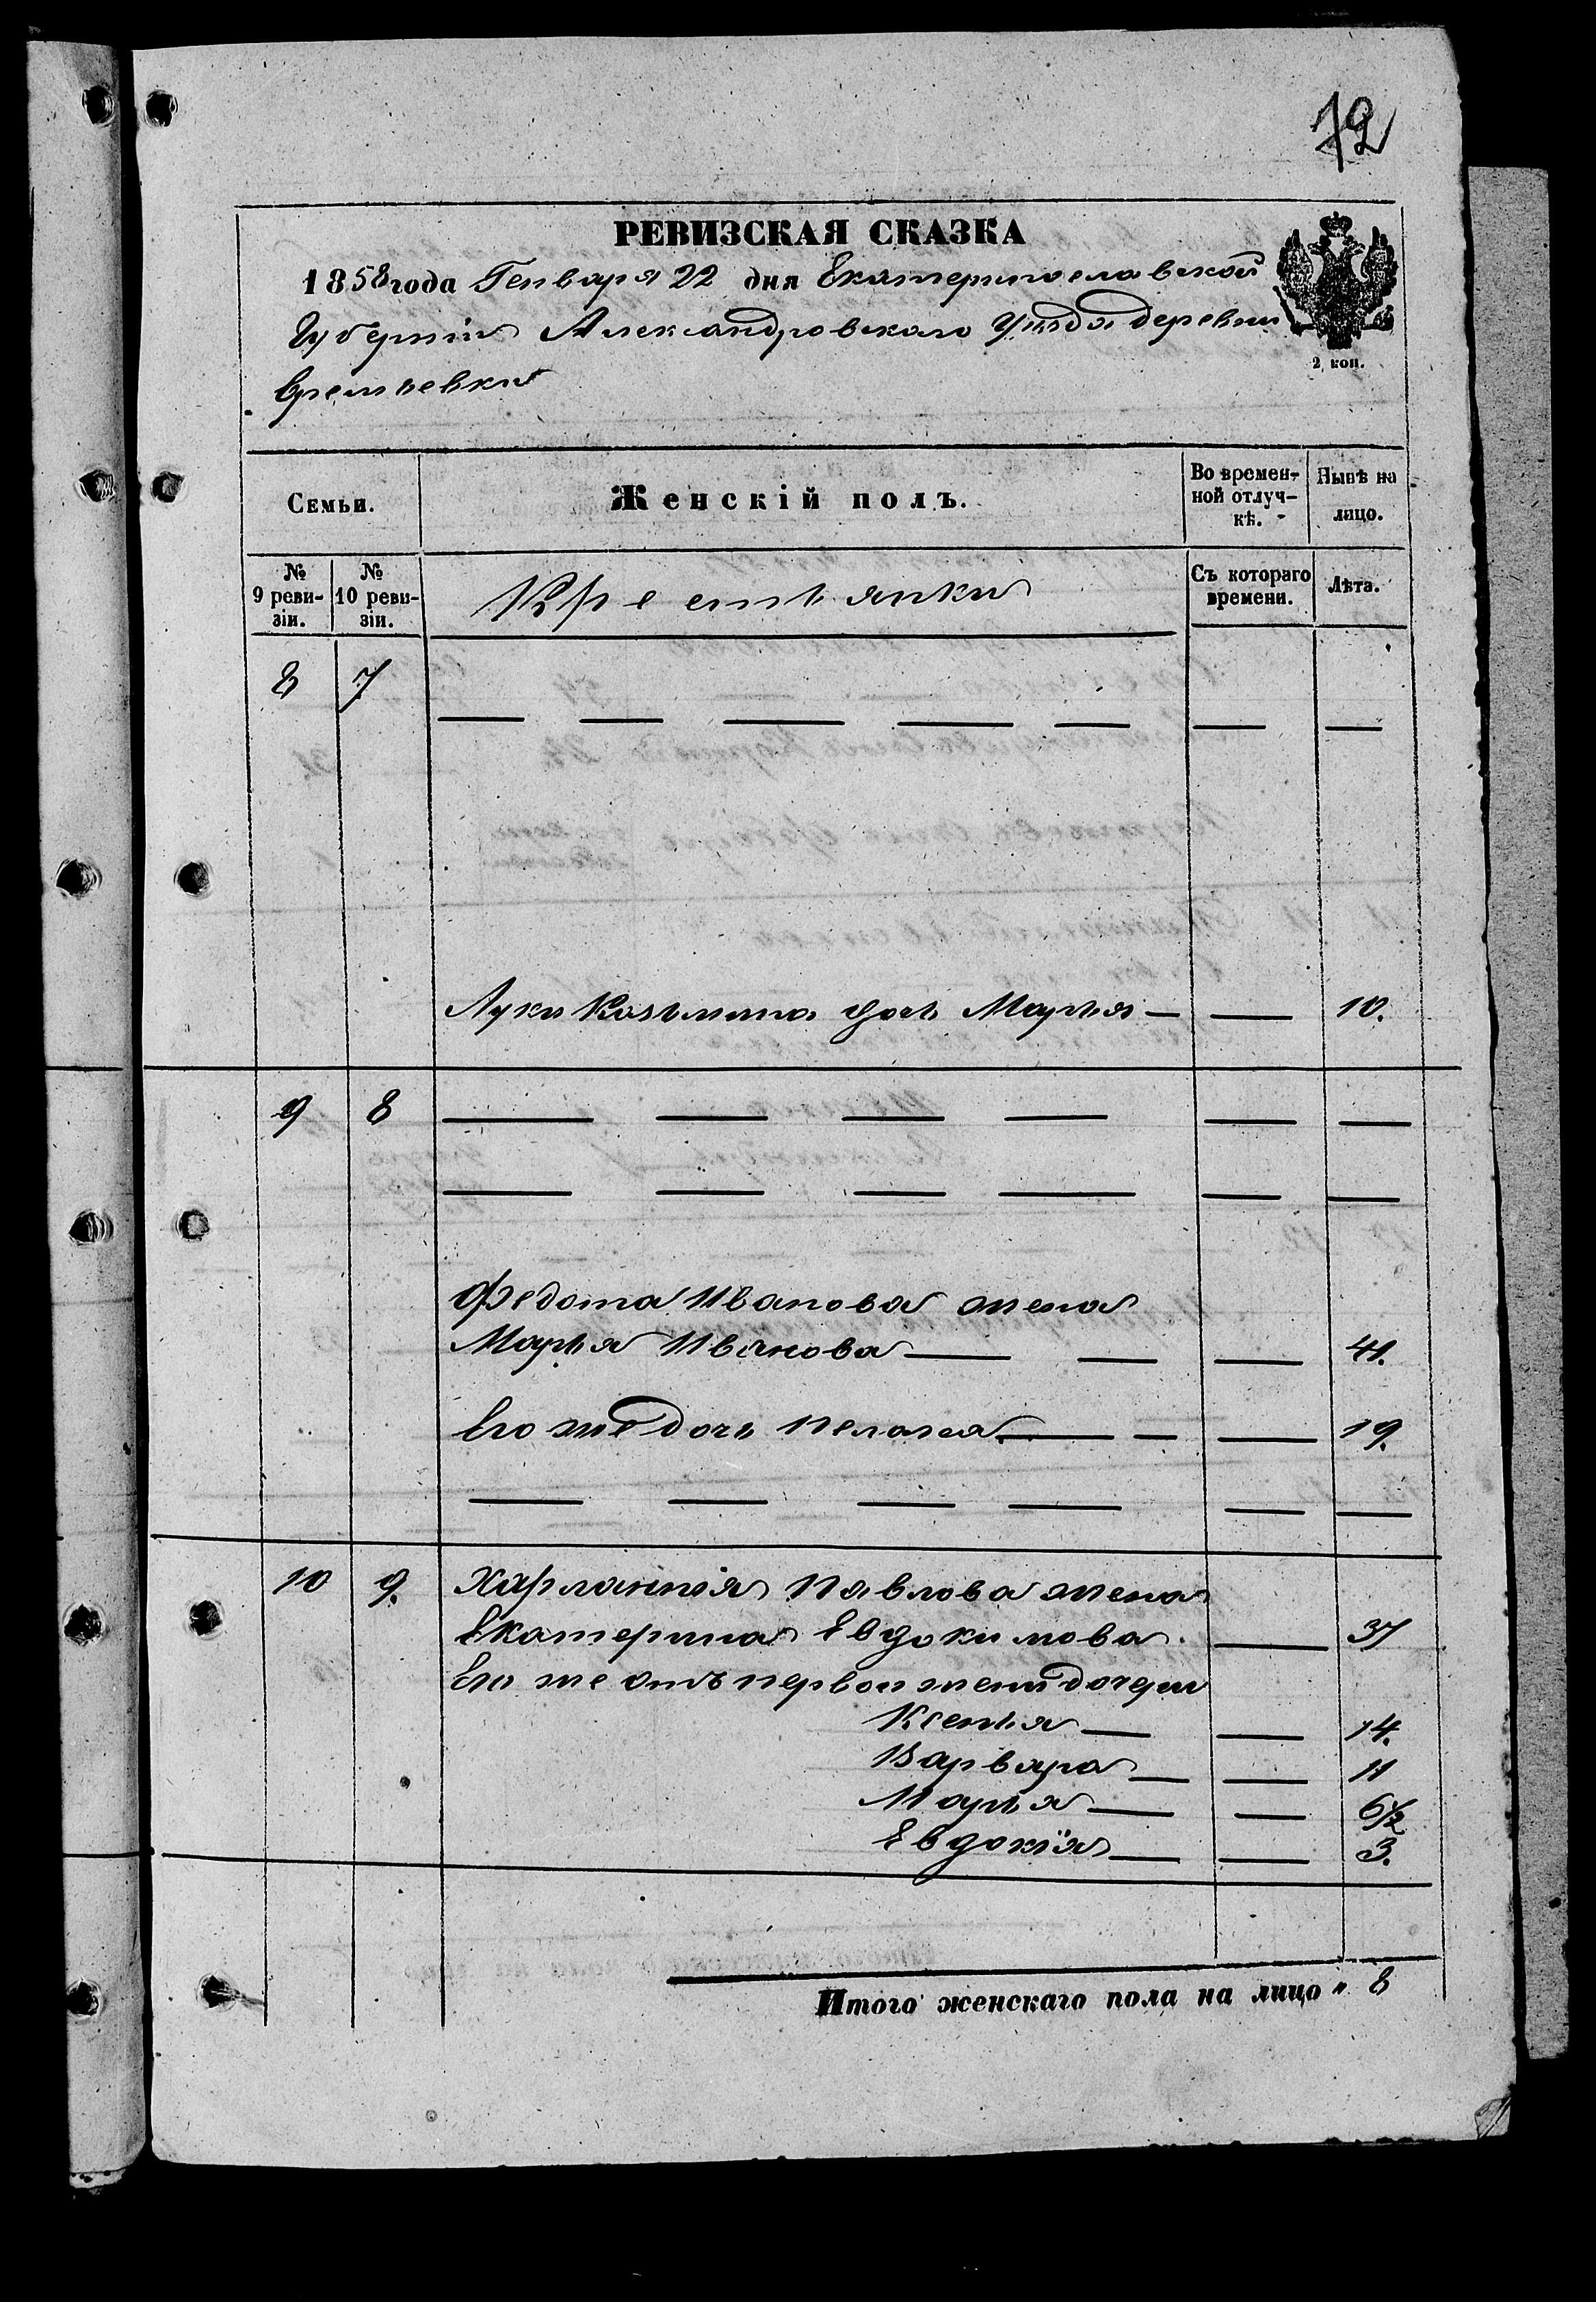 72
РЕВИЗСКАЯ СКАЗКА
1858 года Генваря 22 дня Екатеринославской
Губерніи Александровскаго Уѣзда деревни
Времьевки
2 коп.
Семьи.
Женскій полъ.
Во времен-
ной отлуч-
кѣ.
Нынѣ на
лицо.
№
9 реви-
зіи.
№
10 реви-
зіи.
Крестьянки
Съ котораго
времени.
Лѣта.
8 7
Луки Козьмина дочь Марья — — 10.
9 8
Федота Иванова жена
Марья Иванова — — — 41.
Его же дочь Пелагея — — — 19.
10 9. Харлампія Павлова жена
Екатерина Евдокимова — 37
Его же отъ первой жены дочери
Ксенья — — 14.
Варвара — — 11
Марья — — 6½
Евдокія — — 3.
Итого женскаго пола на лицо " 8